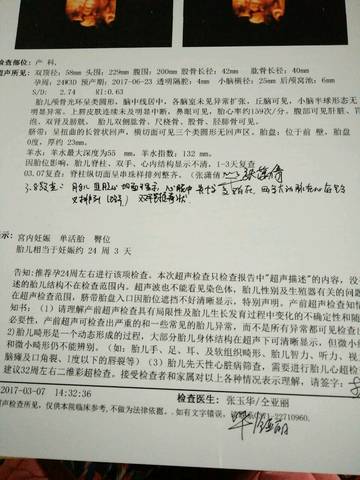 检查部位：产 科.
超声所见：双顶径：58mm 头围：229mm 腹围：200mm 股骨长度：42mm 肱骨长度：40mm
孕周：24W3D 预产期：2017-06-23 透明隔腔：4mm 小脑横径：25mm 后颅窝池：6mm
S/D： 2.74 RI:0.63
胎儿颅骨光环呈类圆形，脑中线居中，各脑室未见异常扩张，丘脑可见，小脑半球形态无
明显异常。上唇皮肤连续未及明显中断，鼻眼可见，胎心率约159次/分，腹部可见肝脏、胃
泡、双肾及膀胱。 胎儿双侧肱骨、尺桡骨、股骨、胫腓骨可见。
脐带：呈扭曲的长管状回声，横切面可见三个类圆形无回声区。胎盘：位于前 壁，胎盘
0度，厚径 23mm.
羊水：羊水最大深度为55 mm，羊水指数：132 mm.
因胎位影响，胎儿脊柱、双手、心内结构显示不清，1-3天复查
03.07复查：脊柱纵切面呈串珠样排列整齐。（张潇倩
示：
宫内妊娠 单活胎 臀位
胎儿相当于妊娠约 24 周 3 天
告知:推荐孕24周左右进行该项检查。本次超声检查只检查报告中"超声描述"的内容，没
述的胎儿结构不在检查范围内。超声波也不能看见染色体，胎儿性别及生殖器有关的问题
在超声检查范围，脐带胎盘入口因胎位遮挡不好清晰显示，特别声明。产前超声检查知情
知书；（1）请理解产前超声检查具有局限性及胎儿生长发育过程中变化的不确定性和随
必要性，产前超声可检查出严重的和一些常见的胎儿异常，而不是所有异常都可见检查出
2）胎儿畸形是一个动态形成的过程，大部分胎儿身体结构在超声下可清晰显示，但微小缺
和微小畸形仍不能辨别，（如：胎儿手、足、耳、及软组织畸形、胎儿智力、听力、视
脑瘫及口角裂、I度以下的唇裂等）（3）胎儿先天性心脏病筛查，需要进行胎儿心超检
建议32周左右二维彩超检查。接受检查者和家属对以上各种情况表示理解，请签字：
2017-03-07 14:32:36 检查医生：张玉华/仝亚丽
超声检查所见，仅供本院临床参考，不做为法律依据。.如有文字错误，22710960.